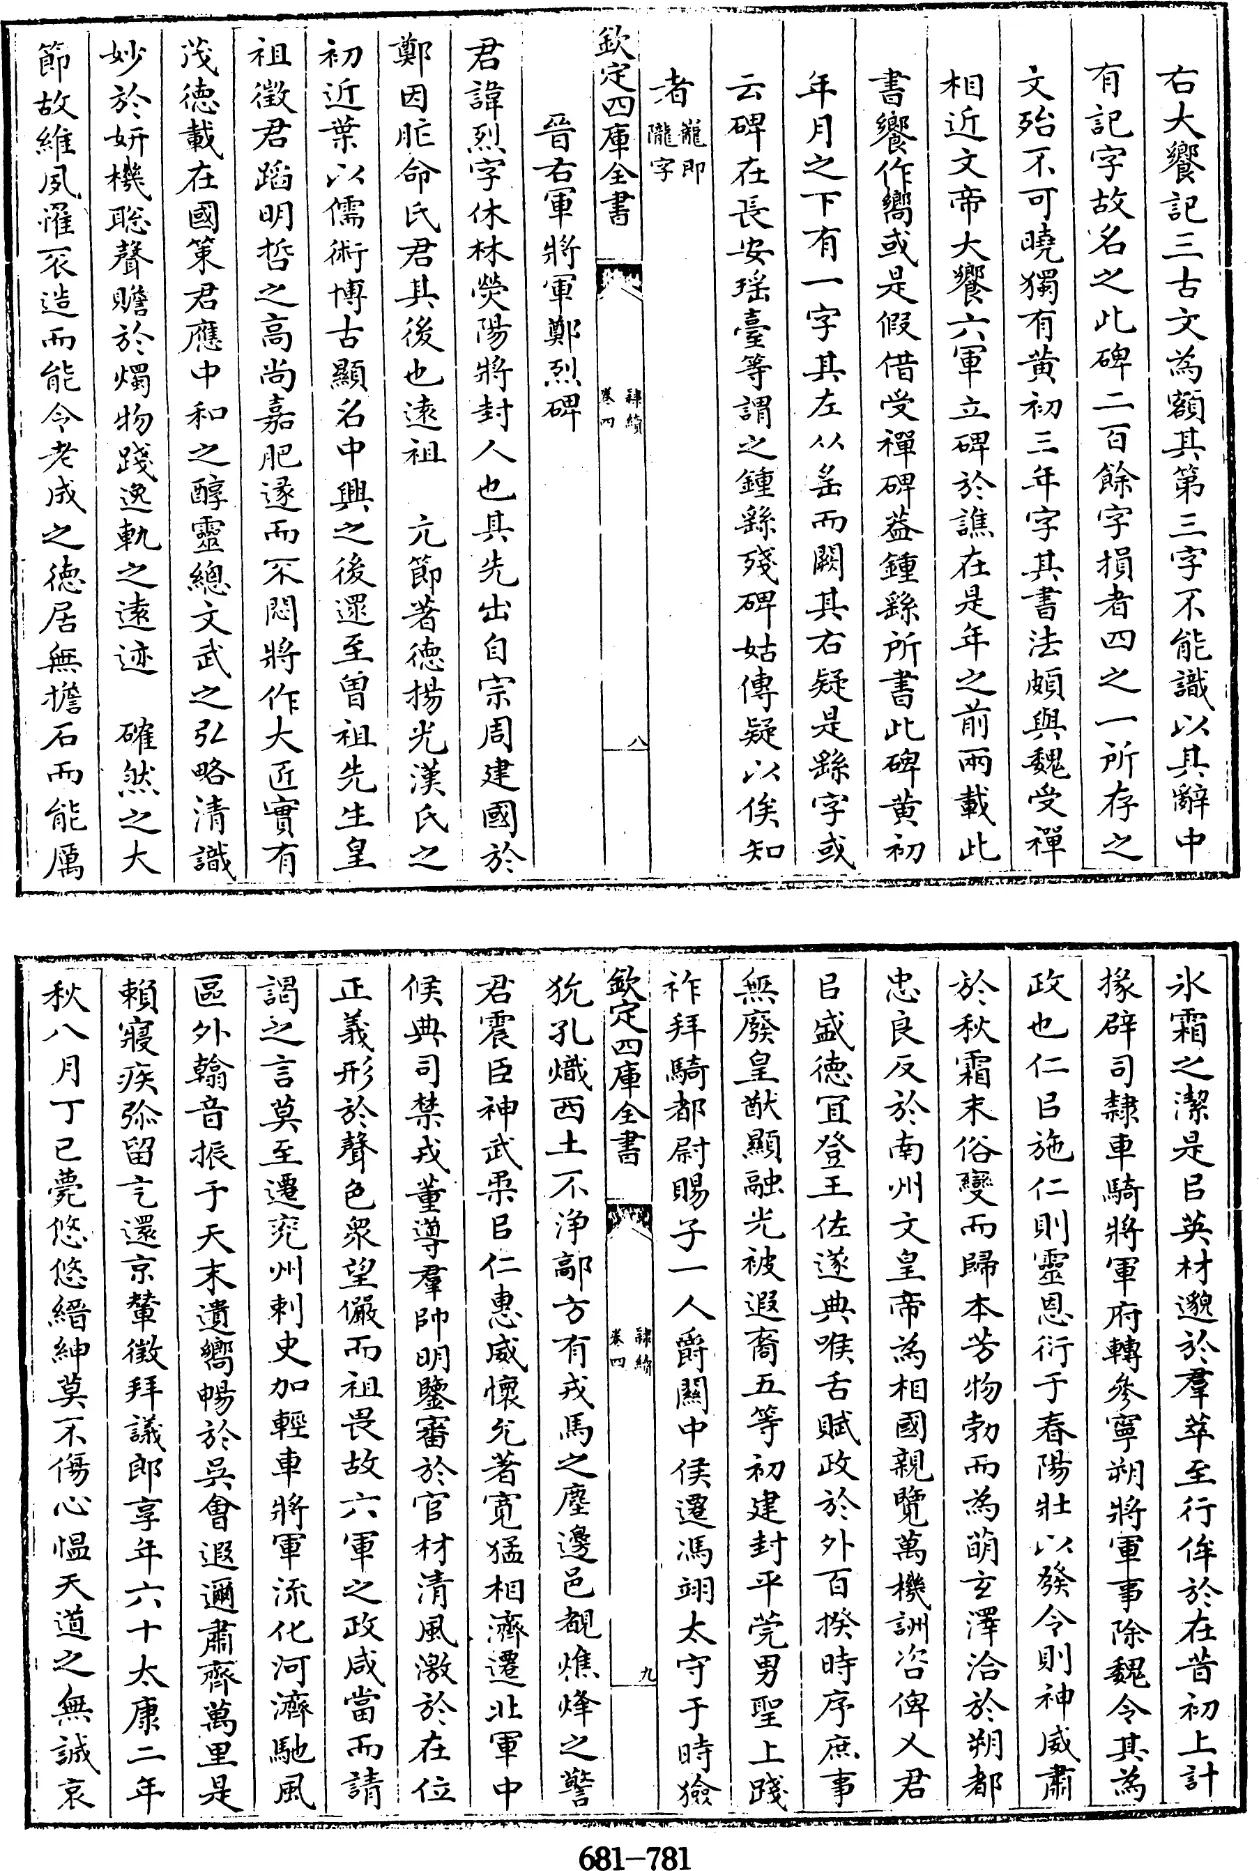 右大饗記三古文為額其第三字不能識以其辭中
有記字故名之此碑二百餘字損者四之一所存之
文殆不可曉獨有黄初三年字其書法頗與魏受禪
相近文帝大饗六軍立碑於譙在是年之前兩載此
書饗作嚮或是假借受禪碑葢鍾繇所書此碑黄初
年月之下有一字其左从䍃而闕其右疑是繇字或
云碑在長安瑶臺等謂之鍾繇殘碑姑傳疑以俟知
者巃即隴字
欽定四庫全書
隸續
卷四
八
晉右軍將軍鄭烈碑
君諱烈字休林熒陽將封人也其先出自宗周建國於
鄭因胙命氏君其後也遠祖 亢節著德揚光漢氏之
初近葉以儒術博古顯名中興之後還至曽祖先生皇
祖徵君蹈明哲之高尚嘉肥遂而不悶將作大匠實有
茂德載在國策君應中和之醇靈總文武之弘略清識
妙於妍機聡聲贍於燭物踐逸軌之遠迹 確然之大
節故維夙罹不造而能令老成之德居無擔石而能厲
氷霜之潔是㠯英材邈於羣萃至行侔於在昔初上計
掾辟司隸車騎將軍府轉參寧朔將軍事除魏令其為
政也仁㠯施仁則靈恩衍于春陽壯以發令則神威肅
於秋霜末俗變而歸本芳物勃而為萌玄澤洽於朔都
忠良反於南州文皇帝為相國親覽萬機詶咨俾乂君
㠯盛德宜登王佐遂典喉舌賦政於外百揆時序庶事
無廢皇猷顯融光被遐裔五等初建封平莞男聖上踐
祚拜騎都尉賜子一人爵關中侯遷馮翊太守于時獫
欽定四庫全書
隸續
卷四
九
狁孔熾西土不浄鄗方有戎馬之塵邊邑覩燋烽之警
君震臣神武柔㠯仁惠威懷允著寛猛相濟遷北軍中
候典司禁戎董導羣帥明鑒審於官材清風激於在位
正義形於聲色衆望儼而祖畏故六軍之政咸當而請
謁之言莫至遷兖州刺史加輕車將軍流化河濟馳風
區外翰音振于天末遺嚮暢於吳會遐邇肅齊萬里是
賴寢疾弥留乞還京輦徵拜議郎享年六十太康二年
秋八月丁已薨悠悠縉紳莫不傷心愠天道之無誠哀
681-781